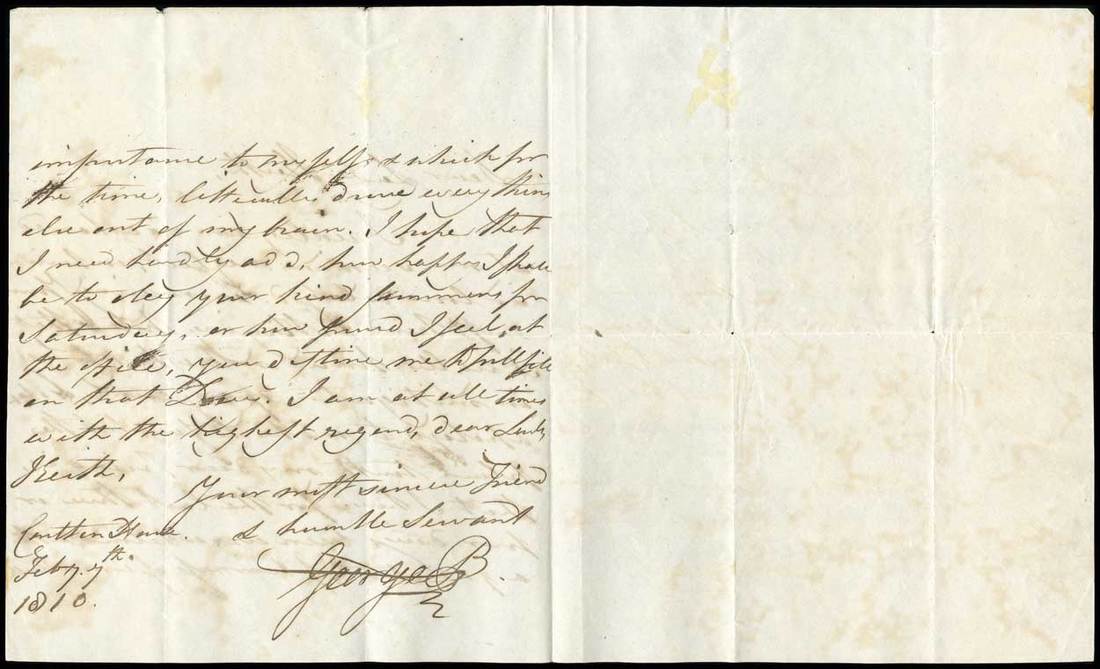 importance to myself, & which for
the time, litterally drove every thing
else out of my brain. I hope that
I need hardly add, how happy I shall
be to obey your kind summons for
Saturday, or how proud I feel, at
the office, you destine me to fullfill
on that Day. I am at all times
with the highest regard, dear Lady
Keith,
Your most sincere Friend
& humble Servant
Carlton House.
Feby. 7th.
1810.
George P.